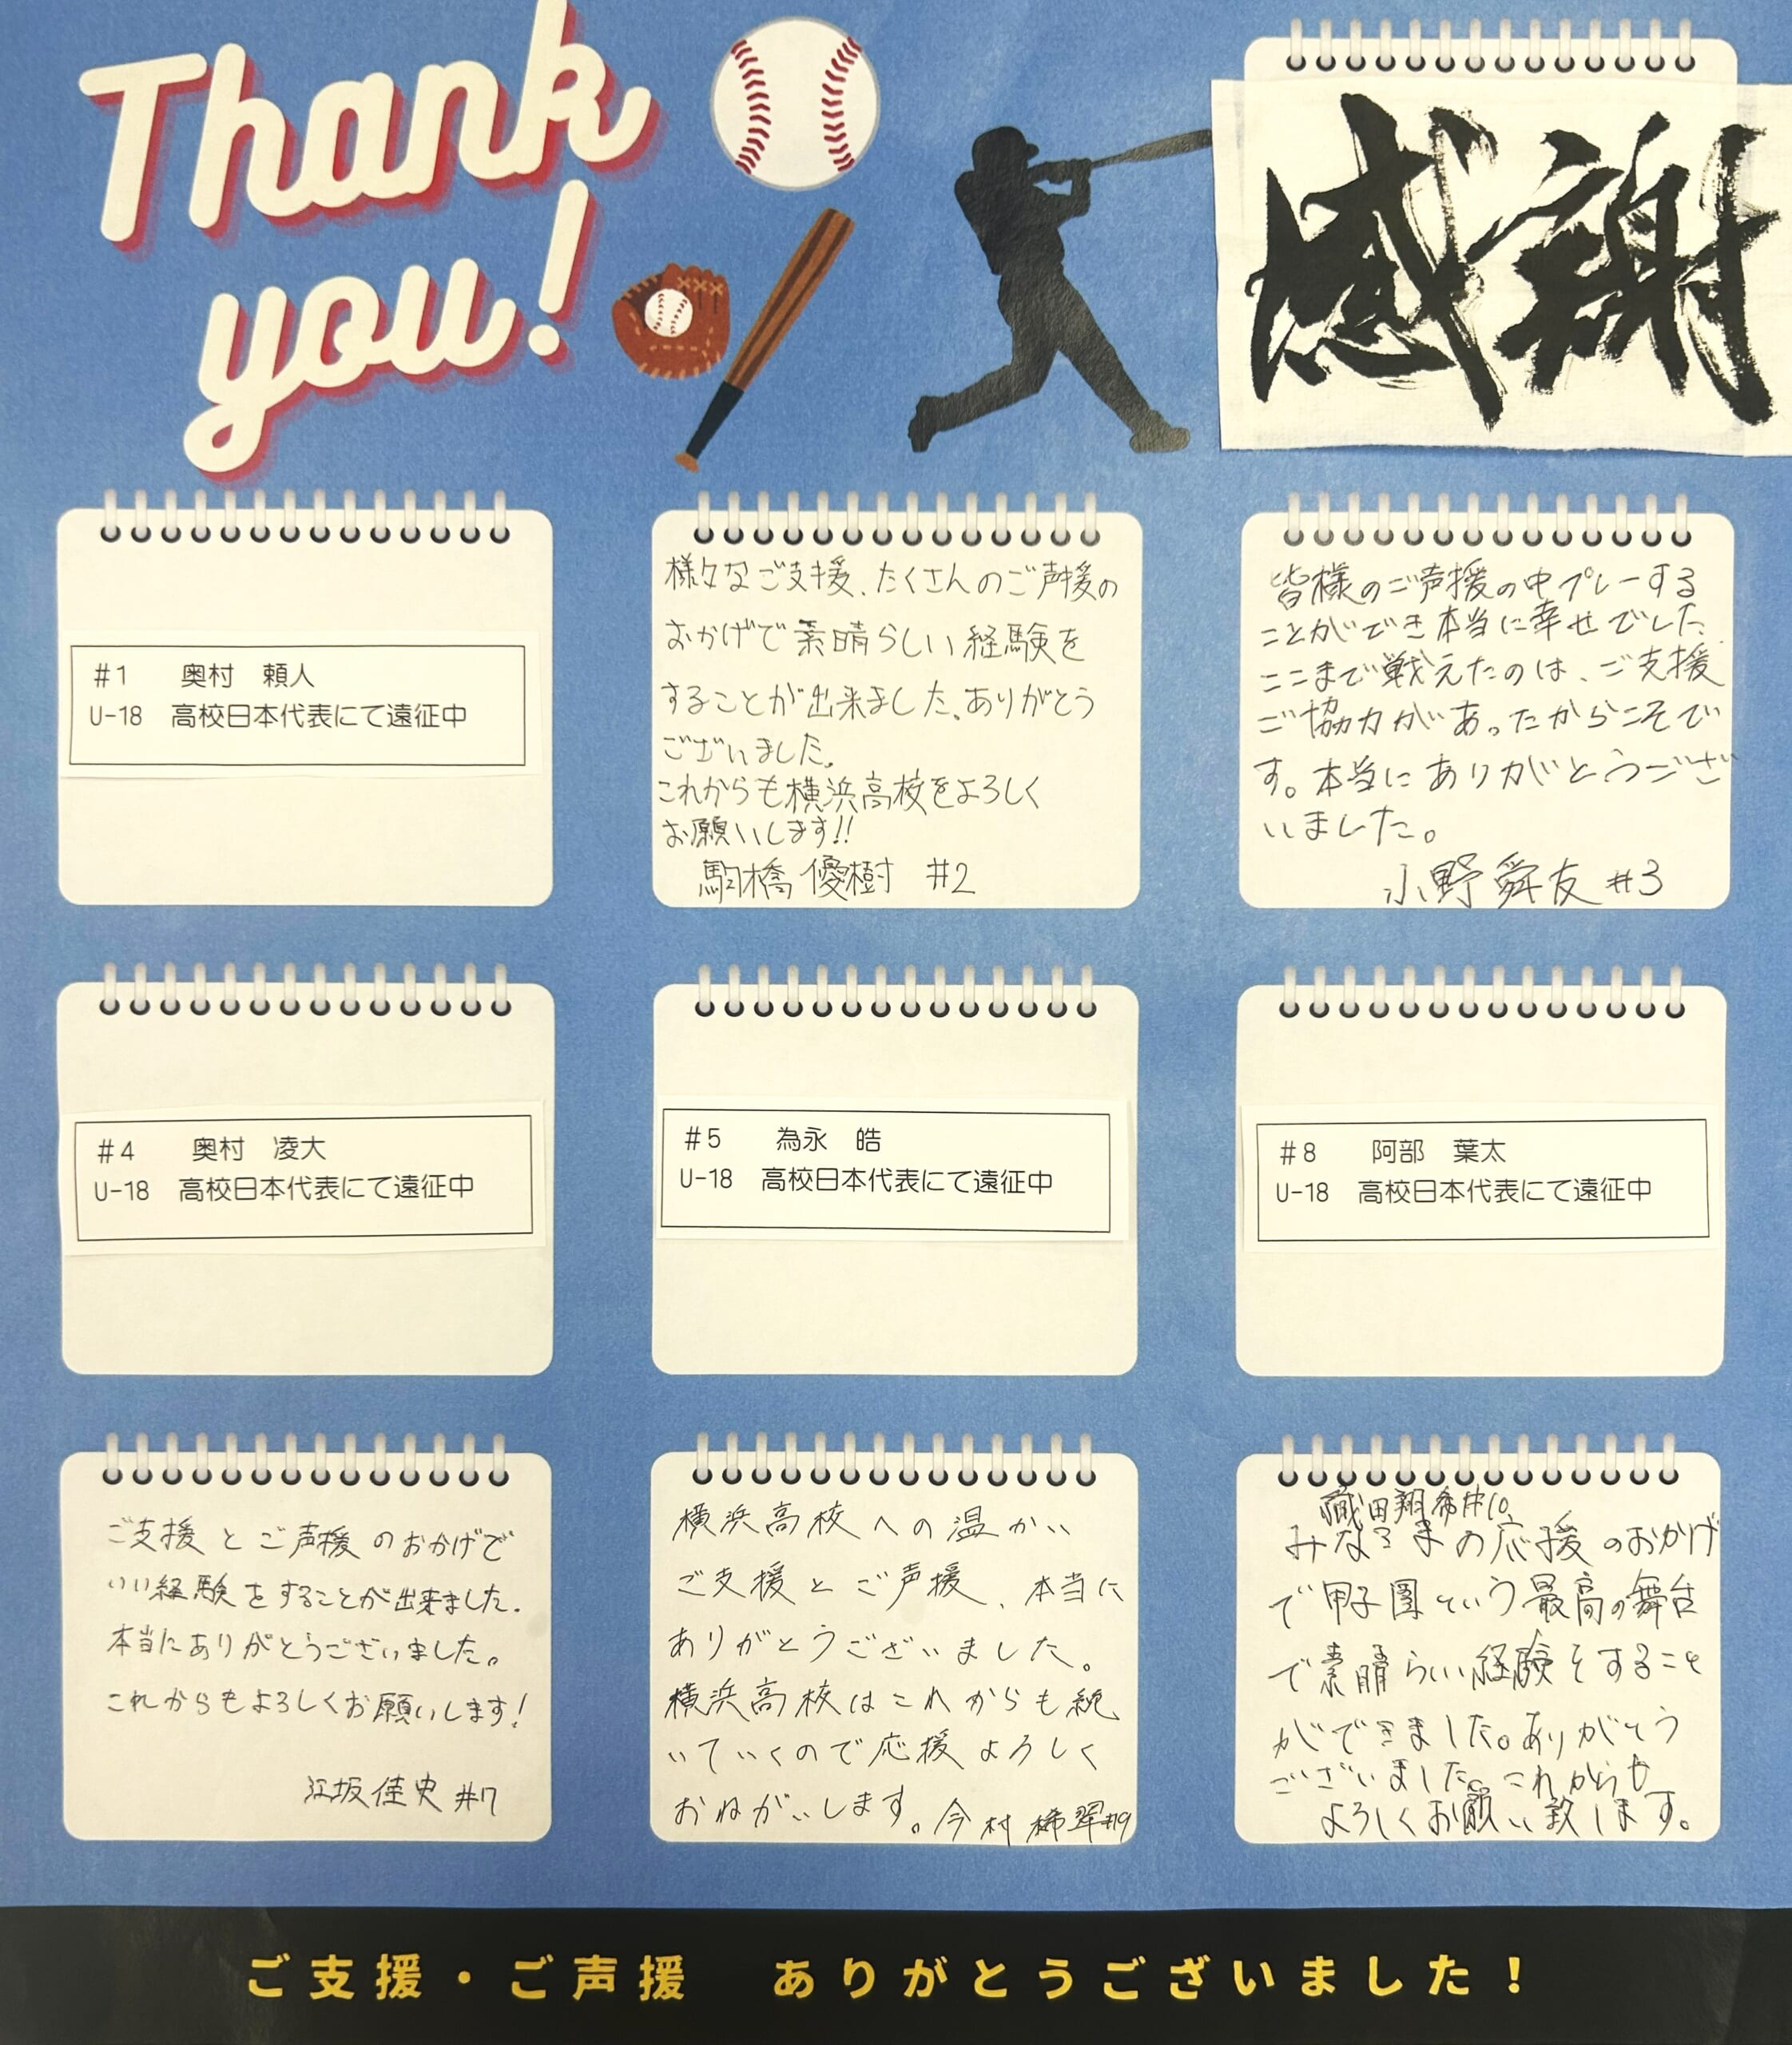 Thank
you!
感謝
#1　奥村　頼人
U-18　高校日本代表にて遠征中
様々なご支援、たくさんのご声援の
おかげで素晴らしい経験を
することが出来ました。ありがとう
ございました。
これからも横浜高校をよろしく
お願いします!!
駒橋 優樹 #2
皆様のご声援の中プレーする
ことができ本当に幸せでした。
ここまで戦えたのは、ご支援
ご協力があったからこそで
す。本当にありがとうござ
いました。
小野 舜友 #3
#4　奥村　凌大
U-18　高校日本代表にて遠征中
#5　為永　皓
U-18　高校日本代表にて遠征中
#8　阿部　葉太
U-18　高校日本代表にて遠征中
ご支援とご声援のおかげで
いい経験をすることが出来ました。
本当にありがとうございました。
これからもよろしくお願いします!
江坂佳史 #7
横浜高校への温かい
ご支援とご声援、本当に
ありがとうございました。
横浜高校はこれからも続
いていくので応援よろしく
おねがいします。今村稀翠#19
織田翔希#10
みなさまの応援のおかげ
で甲子園という最高の舞台
で素晴らしい経験をすること
ができました。ありがとう
ございました。これからも
よろしくお願い致します。
ご支援・ご声援　ありがとうございました！